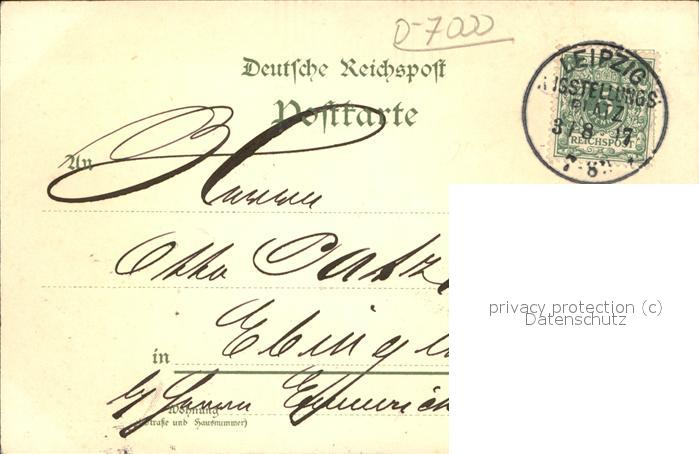 D-7000
Deutsche Reichspost
Postkarte
LEIPZIG
AUSSTELLUNGS-
PLATZ
3/8 17
7-8N
REICHSPOST
An Herrn
Otto
in Ebinge
b/ Herrn
Wohnung
(Straße und Hausnummer)
privacy protection (c)
Datenschutz